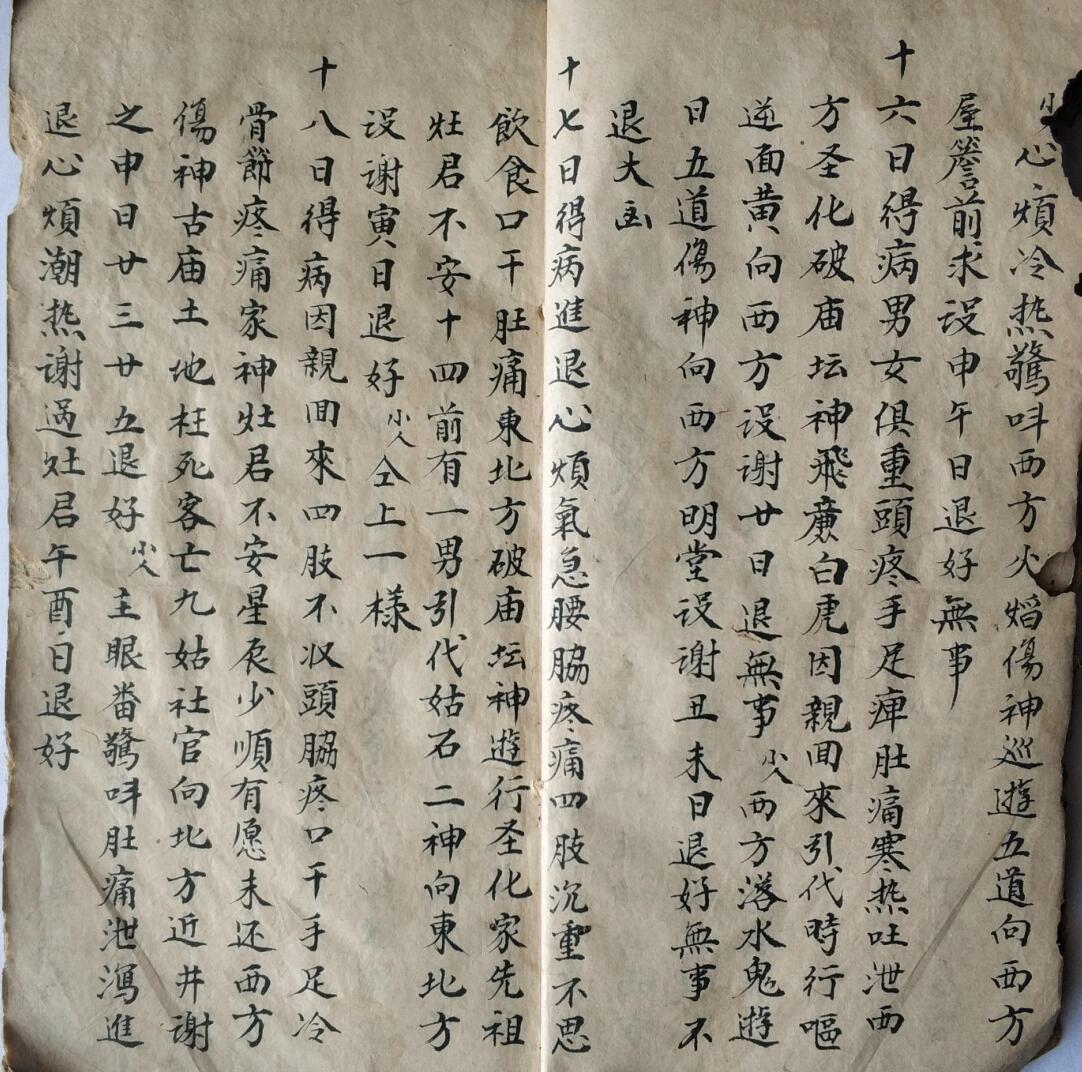 小人心煩冷热驚呌西方火熖傷神巡遊五道向西方
屋簷前求设申午日退好無事
十六日得病男女俱重頭疼手足痺肚痛寒热吐泄西
方圣化破庙坛神飛蔗白虎因親囬來引代時行嘔
逆面黄向西方设谢廿日退無事小人西方落水鬼遊
日五道傷神向西方明堂设谢丑未日退好無事不
退大凶
十七日得病進退心煩氣急腰脇疼痛四肢沉重不思
飲食口干肚痛東北方破庙坛神遊行圣化家先祖
灶君不安十四前有一男引代姑石二神向東北方
设谢寅日退好小人仝上一様
十八日得病因親囬來四肢不収頭脇疼口干手足冷
骨節疼痛家神灶君不安星辰少順有愿未还西方
傷神古庙土地枉死客亡九姑社官向北方近井谢
之申日廿三廿五退好小人主眼畨驚呌肚痛泄瀉進
退心煩潮热谢過灶君午酉日退好